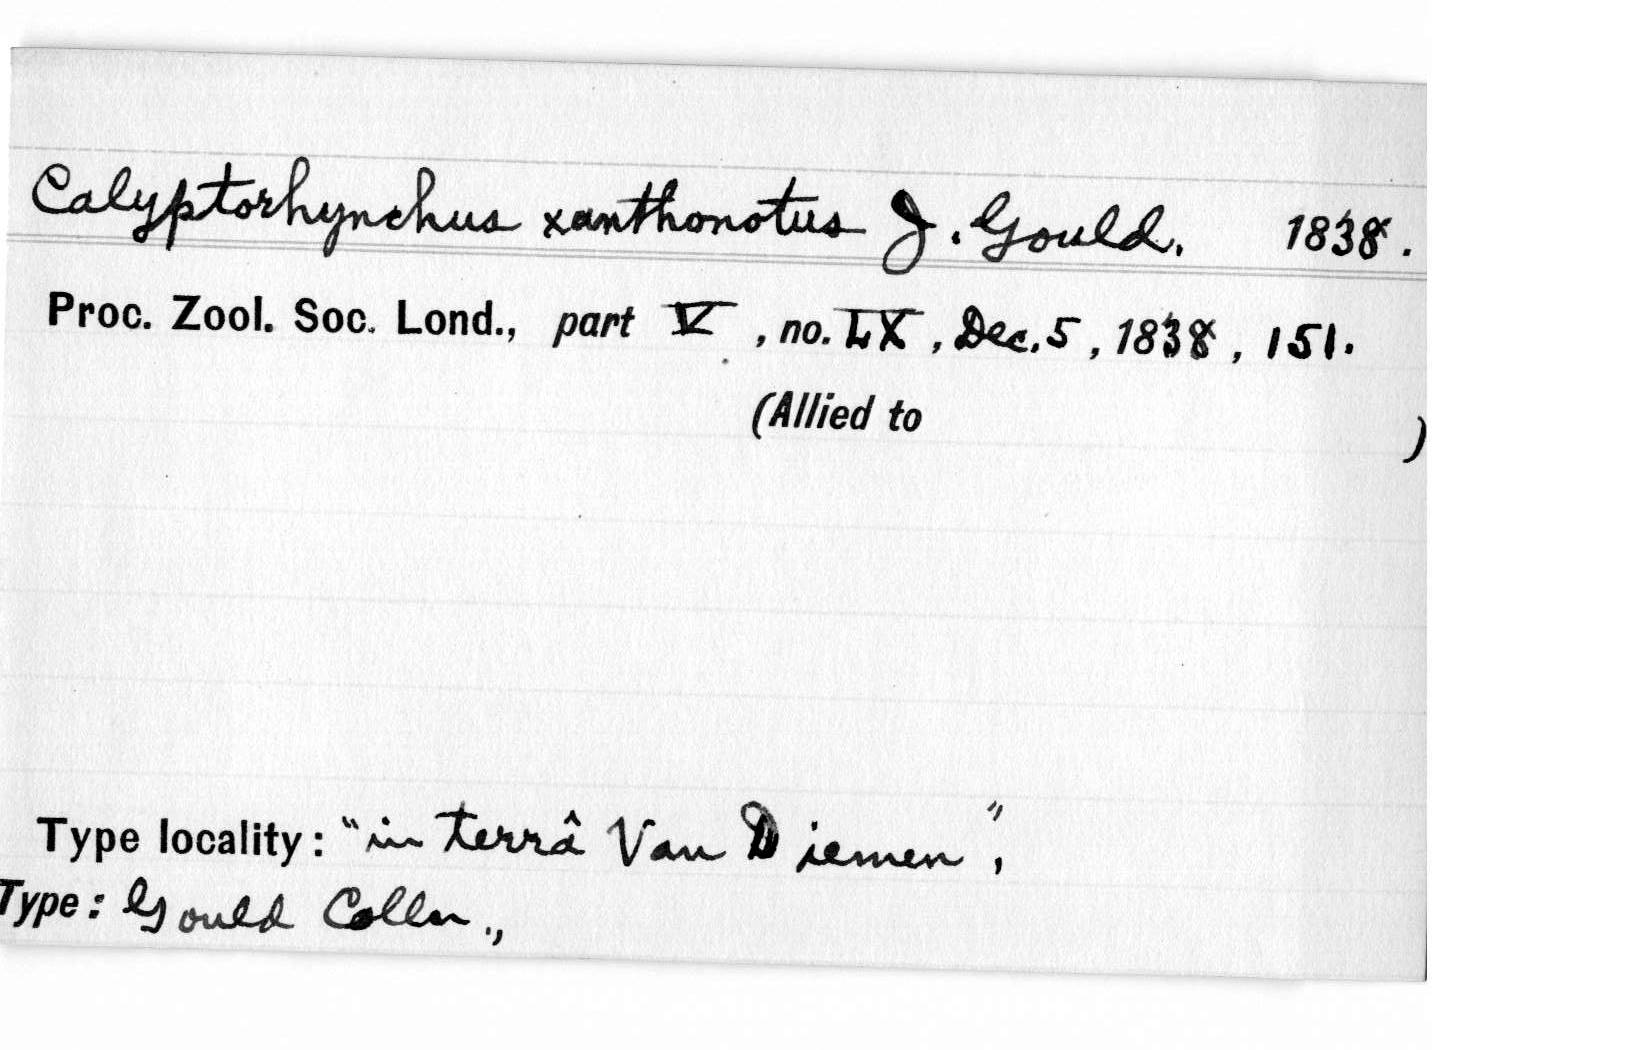 Calyptorhynchus xanthonotus J. Gould. 1838.
Proc. Zool. Soc. Lond., part V, no. LX, Dec. 5, 1838, 151.
(Allied to )
Type locality: "in terrâ Van Diemen",
Type: Gould Colln.,